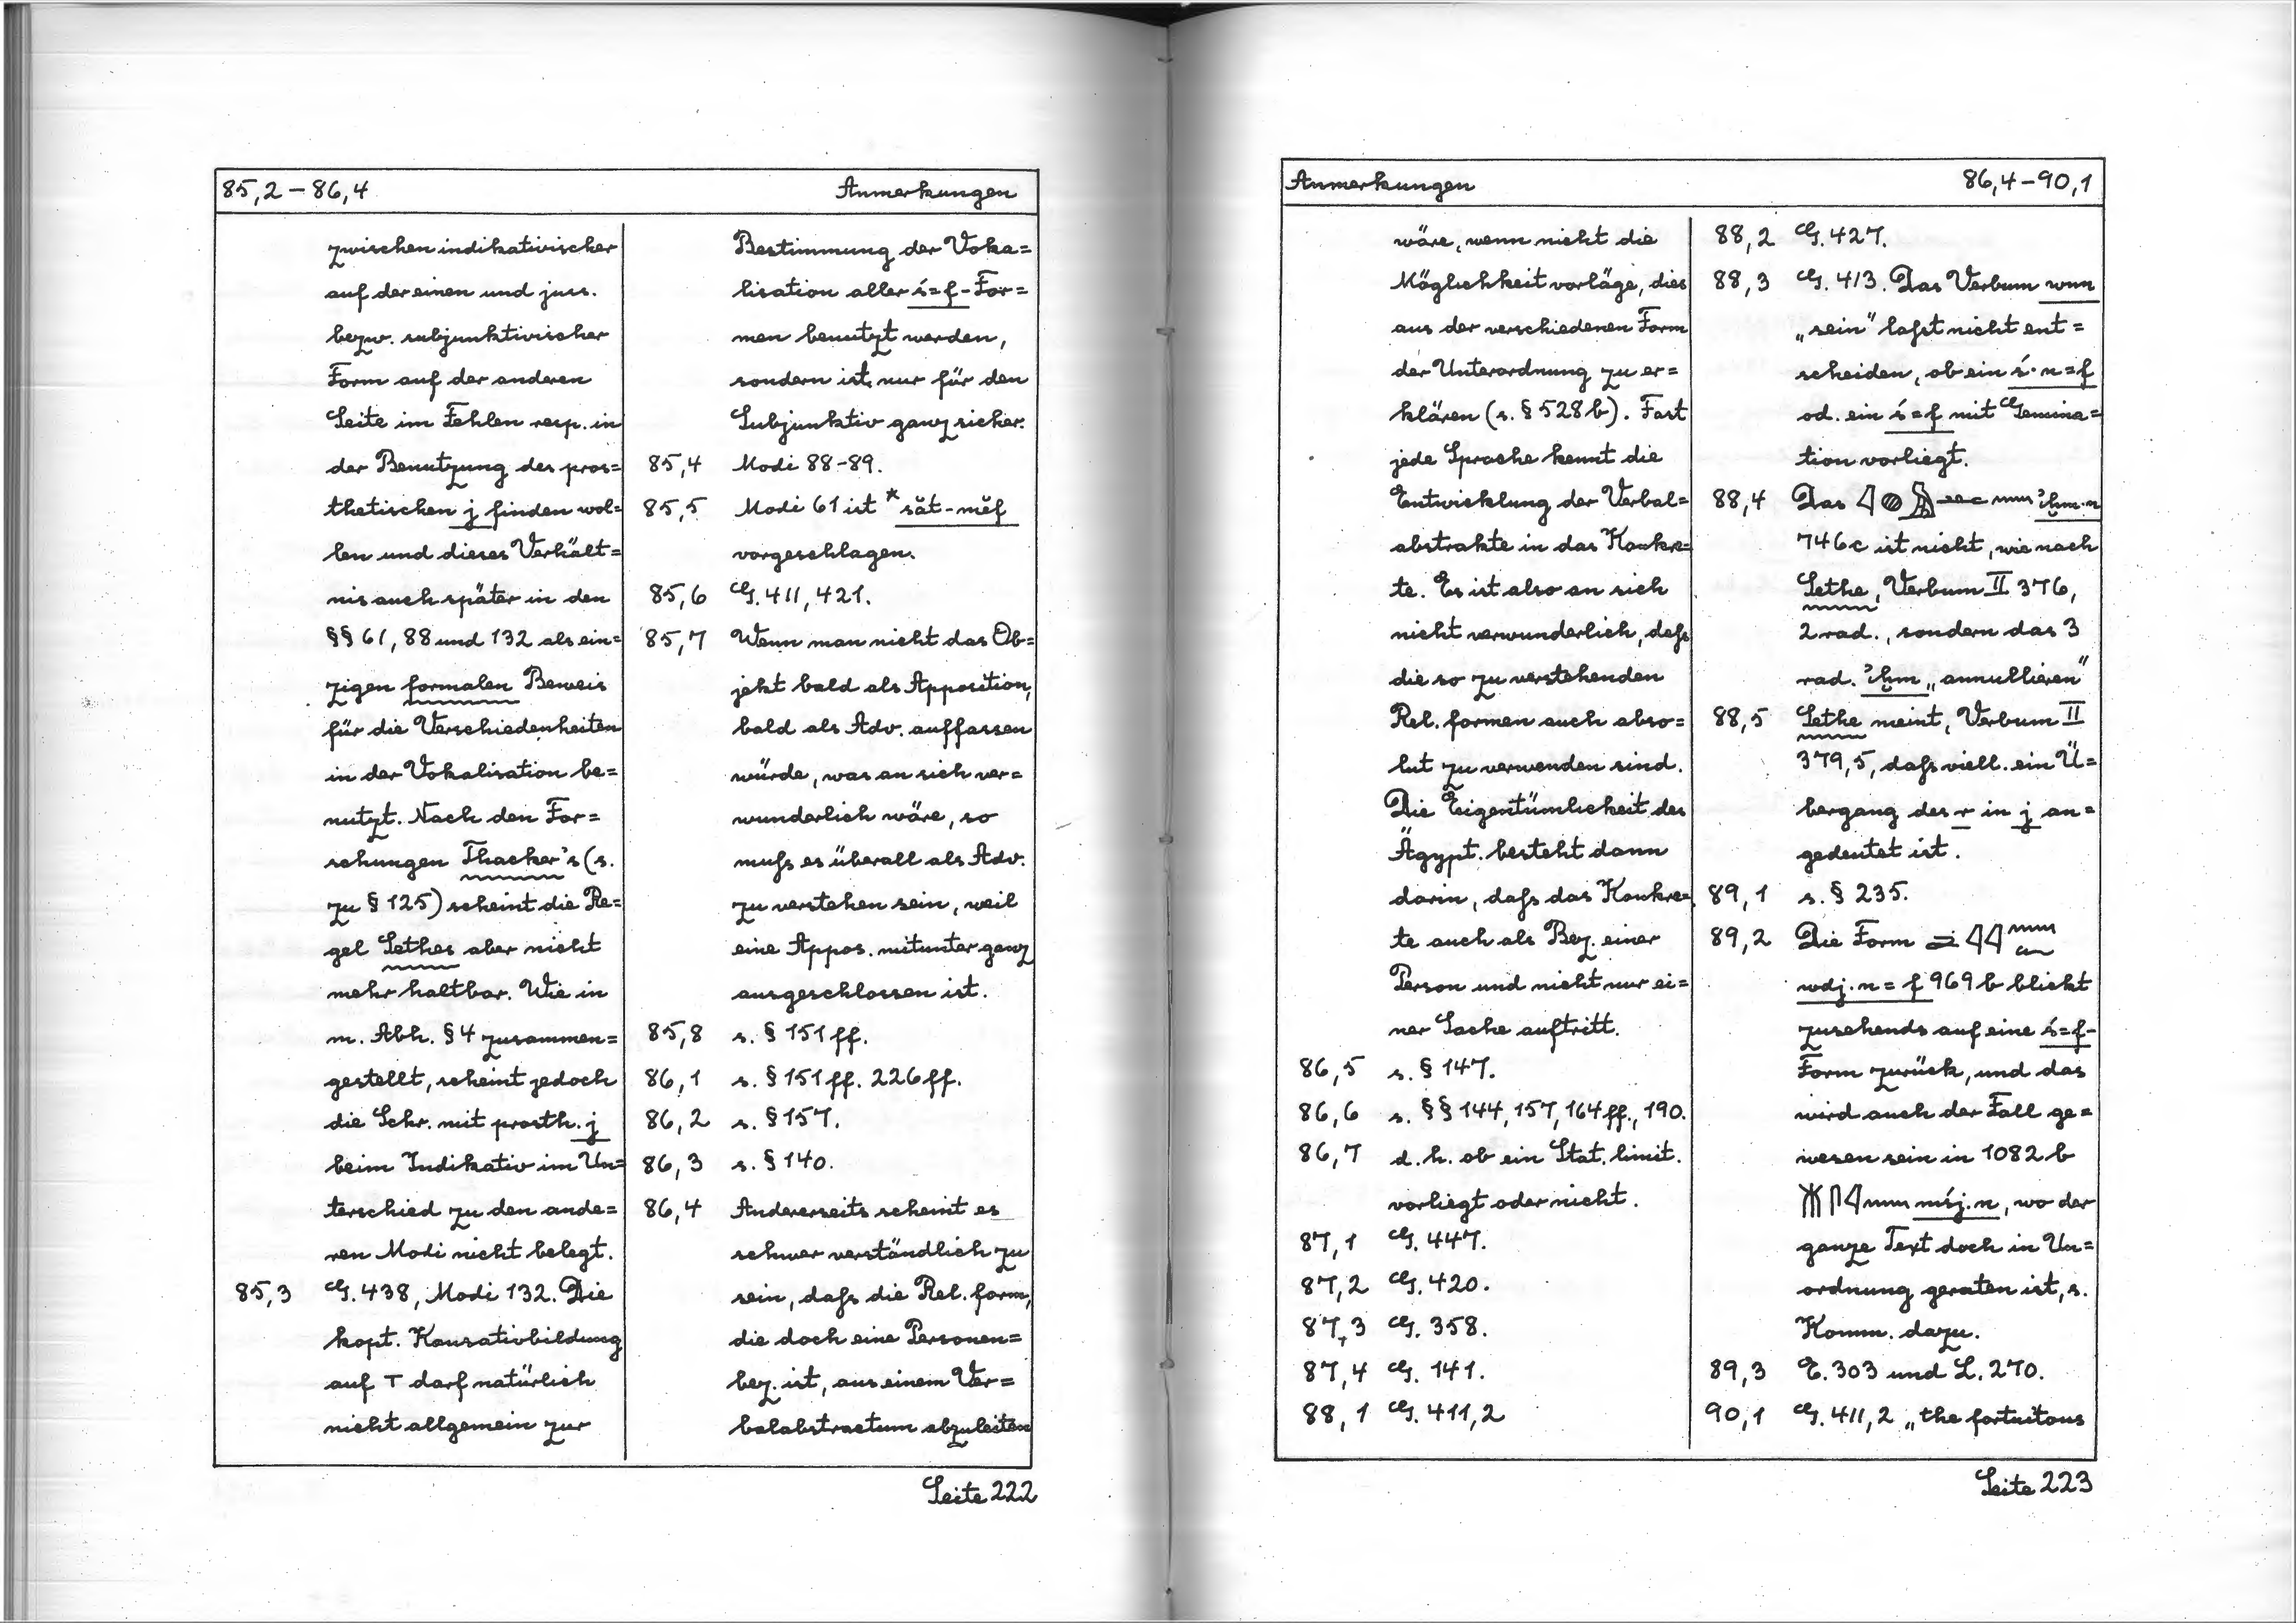 85,2 – 86,4 Anmerkungen
zwischen indikativischer
auf der einen und juss.
bezw. subjunktivischer
Form auf der anderen
Seite im Fehlen resp. in
der Benutzung des pros=
thetischen j finden wol=
len und dieses Verhält=
nis auch später in den
§§ 61, 88 und 132 als ein=
zigen formalen Beweis
für die Verschiedenheiten
in der Vokalisation be=
nutzt. Nach den For=
schungen Thacker's (s.
zu § 125) scheint die Re=
gel Sethes aber nicht
mehr haltbar. Wie in
m. Abh. § 4 zusammen=
gestellt, scheint jedoch
die Schr. mit prosth. j
beim Indikativ im Un=
terschied zu den ande=
ren Modi nicht belegt.
85,3 G. 438, Modi 132. Die
kopt. Kausativbildung
auf T darf natürlich
nicht allgemein zur
Bestimmung der Voka=
lisation aller ś=f-For=
men benutzt werden,
sondern ist nur für den
Subjunktiv ganz sicher.
85,4 Modi 88-89.
85,5 Modi 61 ist *săt-mĕf
vorgeschlagen.
85,6 G. 411, 421.
85,7 Wenn man nicht das Ob=
jekt bald als Apposition,
bald als Adv. auffassen
würde, was an sich ver=
wunderlich wäre, so
muſs es überall als Adv.
zu verstehen sein, weil
eine Appos. mitunter ganz
ausgeschlossen ist.
85,8 s. § 151 ff.
86,1 s. § 151 ff. 226 ff.
86,2 s. § 157.
86,3 s. § 140.
86,4 Andererseits scheint es
schwer verständlich zu
sein, daſs die Rel. form,
die doch eine Personen=
bez. ist, aus einem Ver=
balabstractum abzuleiten
Seite 222
Anmerkungen 86,4 – 90,1
wäre, wenn nicht die
Möglichkeit vorläge, dies
aus der verschiedenen Form
der Unterordnung zu er=
klären (s. § 528 b). Fast
jede Sprache kennt die
Entwicklung der Verbal=
abstrakte in das Konkre=
te. Es ist also an sich
nicht verwunderlich, daſs
die so zu verstehenden
Rel. formen auch abso=
lut zu verwenden sind.
Die Eigentümlichkeit des
Ägypt. besteht dann
darin, daſs das Konkre=
te auch als Bez. einer
Person und nicht nur ei=
ner Sache auftritt.
86,5 s. § 147.
86,6 s. §§ 144, 157, 164 ff., 190.
86,7 d. h. ob ein Stat. limit.
vorliegt oder nicht.
87,1 G. 447.
87,2 G. 420.
87,3 G. 358.
87,4 G. 141.
88,1 G. 411,2
88,2 G. 427.
88,3 G. 413. Das Verbum wnn
„sein" laſst nicht ent=
scheiden, ob ein ś·n=f
od. ein ś=f mit Gemina=
tion vorliegt.
88,4 Das ꜣḫm·n
746c ist nicht, wie nach
Sethe, Verbum II 376,
2 rad., sondern das 3
rad. ꜣḫm „annullieren"
88,5 Sethe meint, Verbum II
379,5, daſs viell. ein Ü=
bergang des r in j an=
gedeutet ist.
89,1 s. § 235.
89,2 Die Form
wdj·n=f 969 b blickt
zusehends auf eine ś=f-
Form zurück, und das
wird auch der Fall ge=
wesen sein in 1082 b
mśj·n, wo der
ganze Text doch in Un=
ordnung geraten ist, s.
Komm. dazu.
89,3 E. 303 und L. 270.
90,1 G. 411,2 „the fortuitous
Seite 223